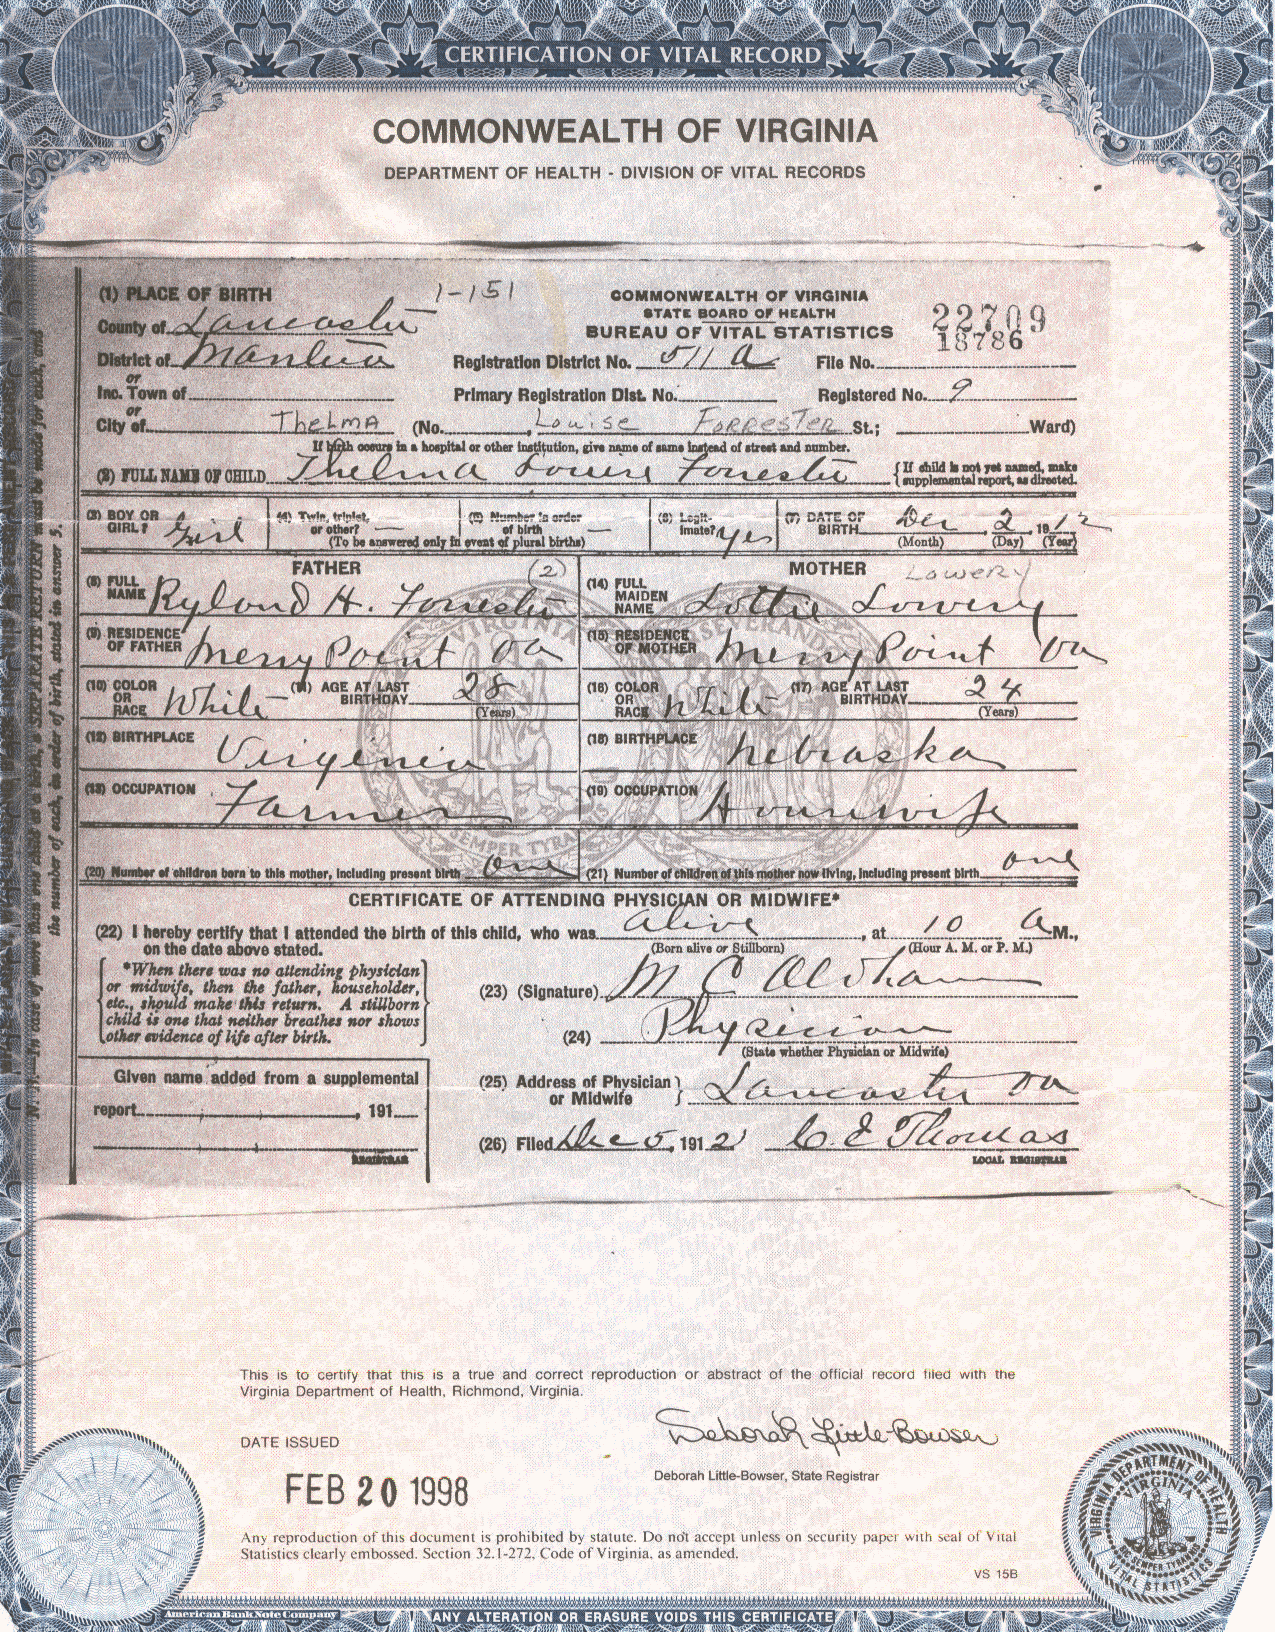 CERTIFICATION OF VITAL RECORD
COMMONWEALTH OF VIRGINIA
DEPARTMENT OF HEALTH - DIVISION OF VITAL RECORDS
(1) PLACE OF BIRTH 1-151
COMMONWEALTH OF VIRGINIA
STATE BOARD OF HEALTH
BUREAU OF VITAL STATISTICS
22709
18786
County of Lancaster
District of Mantua Registration District No. 511 a File No.
or
Inc. Town of Primary Registration Dist. No. Registered No. 9
or
City of Thelma (No. Louise Forrester St.; Ward)
If birth occurs in a hospital or other institution, give name of same instead of street and number.
(2) FULL NAME OF CHILD Thelma Louise Forrester {If child is not yet named, make supplemental report, as directed.
(3) BOY OR GIRL? Girl (4) Twin, triplet, or other? — (5) Number in order of birth — (6) Legitimate? yes (7) DATE OF BIRTH Dec 2, 1912
(To be answered only in event of plural births) (Month) (Day) (Year)
FATHER (2) MOTHER Lowery
(8) FULL NAME Ryland H. Forrester (14) FULL MAIDEN NAME Lottie Lowery
(9) RESIDENCE OF FATHER Merry Point Va (15) RESIDENCE OF MOTHER Merry Point Va
(10) COLOR OR RACE White (11) AGE AT LAST BIRTHDAY 28 (Years) (16) COLOR OR RACE White (17) AGE AT LAST BIRTHDAY 24 (Years)
(12) BIRTHPLACE Virginia (18) BIRTHPLACE Nebraska
(13) OCCUPATION Farmer (19) OCCUPATION Housewife
(20) Number of children born to this mother, including present birth one (21) Number of children of this mother now living, including present birth one
CERTIFICATE OF ATTENDING PHYSICIAN OR MIDWIFE*
(22) I hereby certify that I attended the birth of this child, who was alive, at 10 A M.,
on the date above stated. (Born alive or Stillborn) (Hour A. M. or P. M.)
*When there was no attending physician
or midwife, then the father, householder,
etc., should make this return. A stillborn
child is one that neither breathes nor shows
other evidence of life after birth.
(23) (Signature) M C Oldham
(24) Physician
(State whether Physician or Midwife)
Given name added from a supplemental
report , 191
REGISTRAR
(25) Address of Physician or Midwife } Lancaster Va
(26) Filed Dec 5, 1912 C. E Thomas
LOCAL REGISTRAR
This is to certify that this is a true and correct reproduction or abstract of the official record filed with the
Virginia Department of Health, Richmond, Virginia.
DATE ISSUED
Deborah Little-Bowser
FEB 20 1998
Deborah Little-Bowser, State Registrar
Any reproduction of this document is prohibited by statute. Do not accept unless on security paper with seal of Vital
Statistics clearly embossed. Section 32.1-272, Code of Virginia, as amended.
VS 15B
VIRGINIA DEPARTMENT OF HEALTH
VIRGINIA
SIC SEMPER TYRANNIS
VITAL STATISTICS
American Bank Note Company
ANY ALTERATION OR ERASURE VOIDS THIS CERTIFICATE